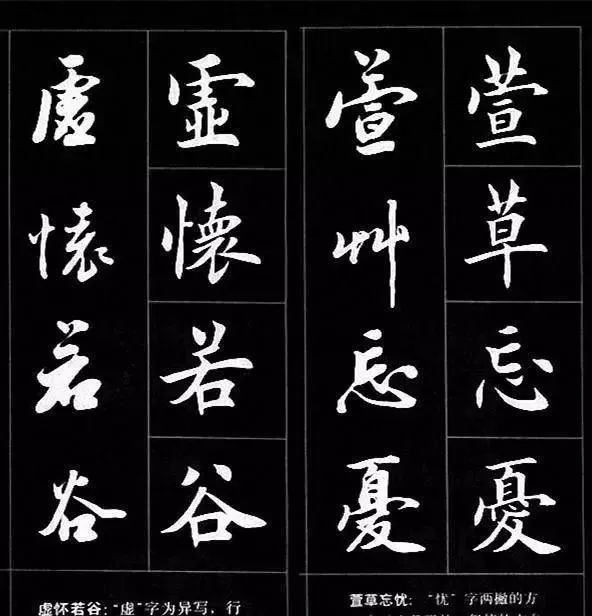 萱草忘憂
萱艸忘憂
虛懷若谷
虛懷若谷
萱草忘忧：“忧”字两撇的方
虚怀若谷：“虚”字为异写，行